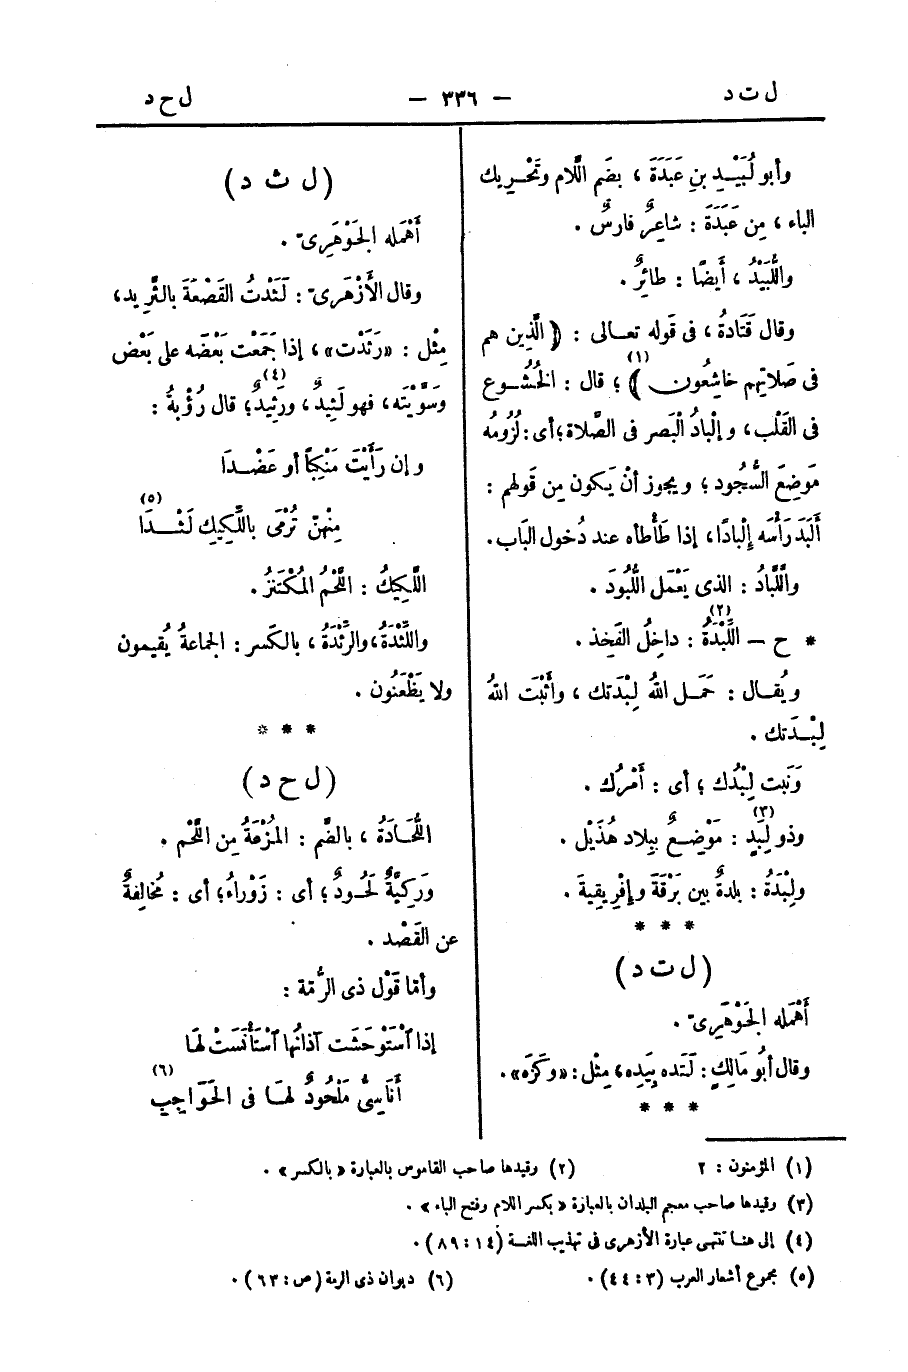 ل ت د — ٣٣٦ — ل ح د
وأبو لُبَيْدِ بنِ عَبَدَةَ ، بضَم اللَّام وتَحْرِيك
الباء ، مِن عَبَدَةَ : شاعِرٌ فارسٌ .
واللُّبَيْدُ ، أيضًا : طائِرٌ .
وقال قَتَادةُ ، فى قوله تعالى : ﴿ الَّذِين هم
فى صَلاتِهم خاشِعُون ﴾ (١) ؛ قال : الخُشُوع
فى القَلْب ، وإلْبادُ الْبَصر فى الصَّلاة ؛ أى : لُزُومُه
مَوضِعَ السُّجُود ؛ ويجوز أنْ يَكون مِن قَولهم :
أَلْبَدَ رَأْسَه إِلْبادًا ، إذا طَأْطأه عند دُخول البَاب .
واللَّبَّادُ : الذى يَعْمَل اللُّبُودَ .
* ح – اللِّبْدَةُ (٢) : داخِلُ الفَخِذ .
ويُقال : حَمَل اللهُ لِبْدَتك ، وأَثْبَت اللهُ
لِبْدَتك .
وَثَبت لِبْدُك ؛ أى : أَمْرُك .
وذو لِبَدٍ (٣) : مَوْضِعٌ بِبِلاد هُذَيْل .
ولِبْدَةُ : بلدةٌ بين بَرْقَةَ وإفْرِيقِية .
* * *
( ل ت د )
أَهْمله الجَوْهَرِىّ .
وقال أبُو مَالِكٍ : لَتَده بِيَدِه ، مِثْل : «وكَزَه» .
* * *
( ل ث د )
أَهْمَله الجَوْهَرِىّ .
وقال الأَزْهَرِىّ : لَثَدْتُ القَصْعَةَ بالثَّرِيد ،
مِثْل : «رَثَدْت» ، إذا جَمَعْت بَعْضَه على بَعْض
وسَوَّيْته ، فهو لَثِيدٌ ، ورَثِيدٌ (٤) ؛ قال رُؤْبةُ :
وإن رَأَيْتَ مَنْكِبًا أو عَضُدَا
مِنْهنّ تُرْمَى باللَّكِيك لَثْدَا (٥)
اللَّكِيكُ : اللَّحْمُ المُكْتَنِزُ .
واللِّثْدَةُ ، والرِّثْدَةُ ، بالكَسر : الجماعةُ يُقيمون
ولا يَظْعَنُون .
* * *
( ل ح د )
اللُّحَادَةُ ، بالضَّم : المُزْعَةُ مِن اللَّحْم .
ورَكِيَّةٌ لَحُودٌ ؛ أى : زَوْراءُ ؛ أى : مُخالِفةٌ
عن القَصْد .
وأمّا قَوْل ذى الرُّمّة :
إذا ٱسْتَوْحَشَت آذانُها ٱسْتَأْنَسَتْ لها
أَنَاسِىُّ مَلْحُودٌ لها فى الحَوَاجِبِ (٦)
(١) المؤمنون : ٢ (٢) وقيدها صاحب القاموس بالعبارة « بالكسر » .
(٣) وقيدها صاحب معجم البلدان بالعبارة « بكسر اللام وفتح الباء » .
(٤) إلى هنا تنتهى عبارة الأزهرى فى تهذيب اللغة (١٤ : ٨٩) .
(٥) مجموع أشعار العرب (٣ : ٤٤) . (٦) ديوان ذى الرمة (ص : ٦٣) .